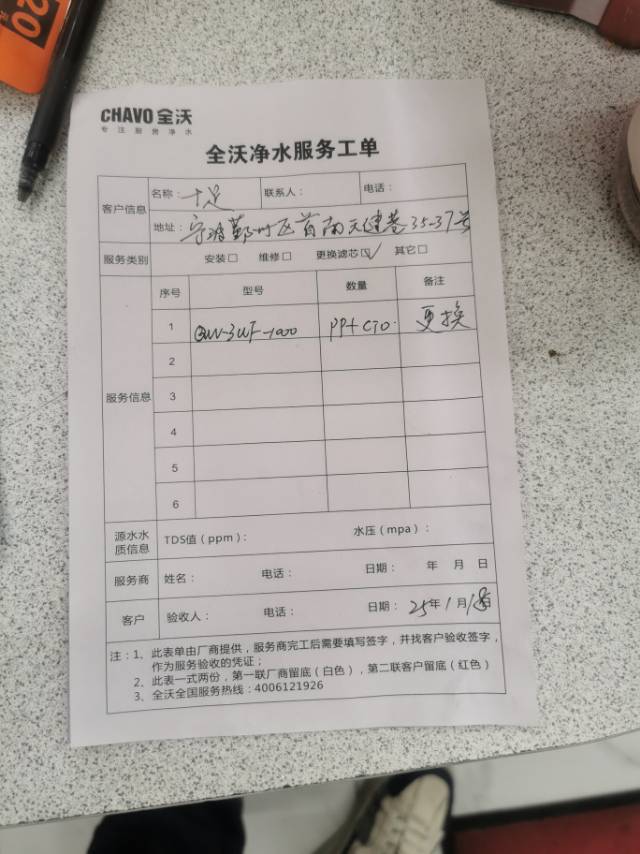 20
CHAVO 全沃
专注服务净水
全沃净水服务工单
客户信息 名称：十足 联系人： 电话：
地址：宁波鄞州区首南天健巷35-37号
服务类别 安装□ 维修□ 更换滤芯☑ 其它□
序号 型号 数量 备注
1 QUV-3UF-1000 PP+CTO. 更换
2
服务信息 3
4
5
6
源水水质信息 TDS值（ppm）： 水压（mpa）：
服务商 姓名： 电话： 日期： 年 月 日
客户 验收人： 电话： 日期：25年1月18日
注：1、此表单由厂商提供，服务商完工后需要填写签字，并找客户验收签字，
作为服务验收的凭证；
2、此表一式两份，第一联厂商留底（白色），第二联客户留底（红色）
3、全沃全国服务热线：4006121926